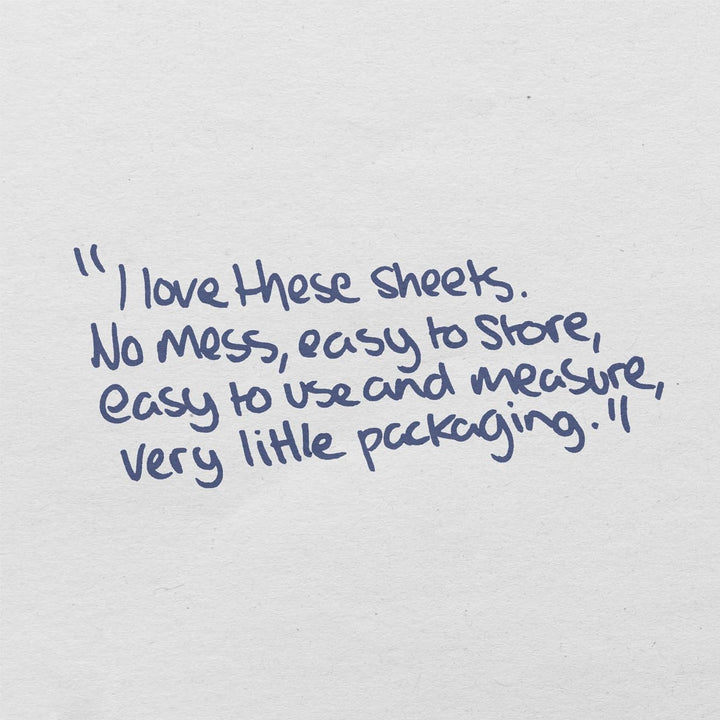 "I love these sheets.
No mess, easy to store,
easy to use and measure,
very little packaging."